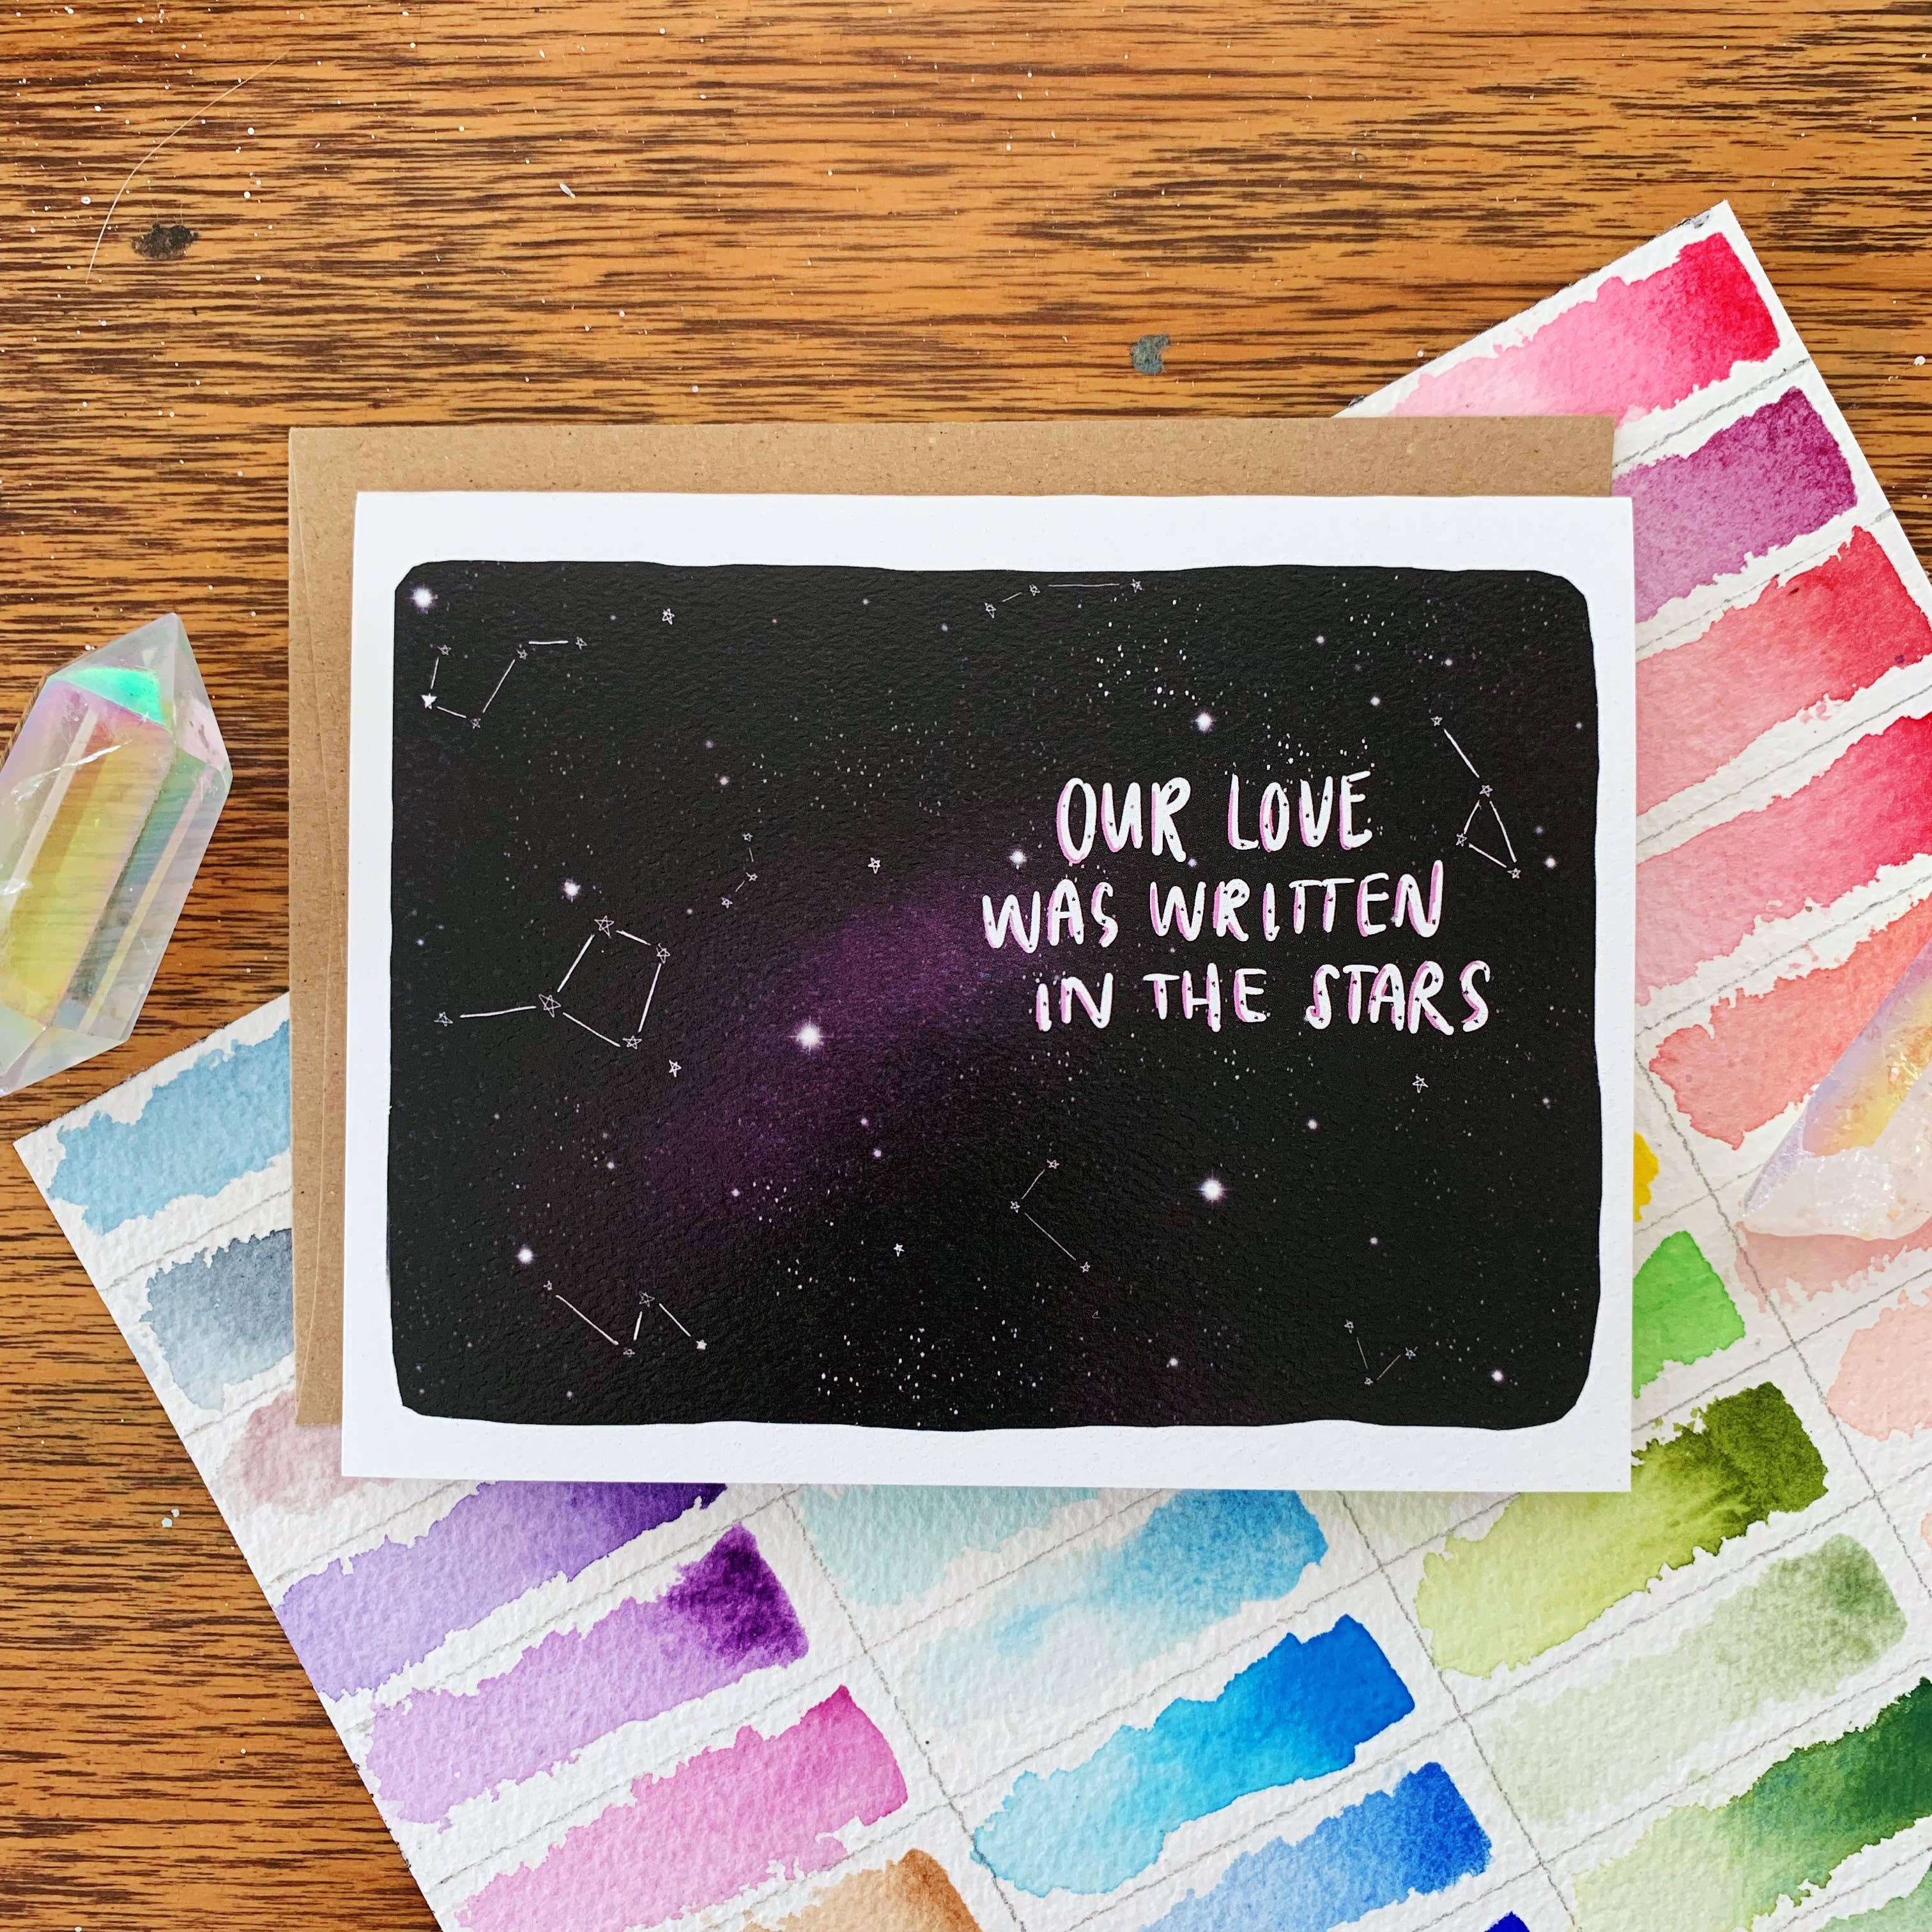 OUR LOVE
WAS WRITTEN
IN THE STARS